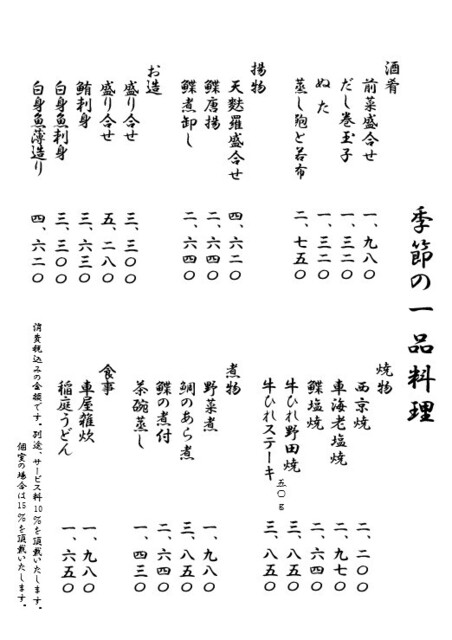 季節の一品料理
酒肴
前菜盛合せ 一、九八〇
だし巻玉子 一、三二〇
ぬた 一、三二〇
蒸し鮑と若布 二、七五〇
揚物
天麩羅盛合せ 四、六二〇
鰈唐揚 二、六四〇
鰈煮卸し 二、六四〇
お造
盛り合せ 三、三〇〇
盛り合せ 五、二八〇
鮪刺身 三、六三〇
白身魚刺身 三、三〇〇
白身魚薄造り 四、六二〇
焼物
西京焼 二、二〇〇
車海老塩焼 二、九七〇
鰈塩焼 二、六四〇
牛ひれ野田焼 三、八五〇
牛ひれステーキ 五〇g 三、八五〇
煮物
野菜煮 一、九八〇
鯛のあら煮 三、八五〇
鰈の煮付 二、六四〇
茶碗蒸し 一、四三〇
食事
車屋雑炊 一、九八〇
稲庭うどん 一、六五〇
消費税込みの金額です。別途、サービス料10%を頂戴いたします。
個室の場合は15%を頂戴いたします。